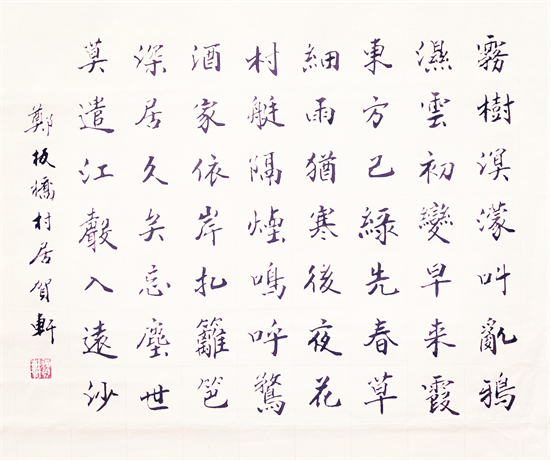 霧樹溟濛叫亂鴉
濕雲初變早来霞
東方已綠先春草
細雨猶寒後夜花
村艇隔煙鳴呼鶩
酒家依岸扎籬笆
深居久矣忘塵世
莫遣江聲入遠沙
鄭板橋村居賀軒